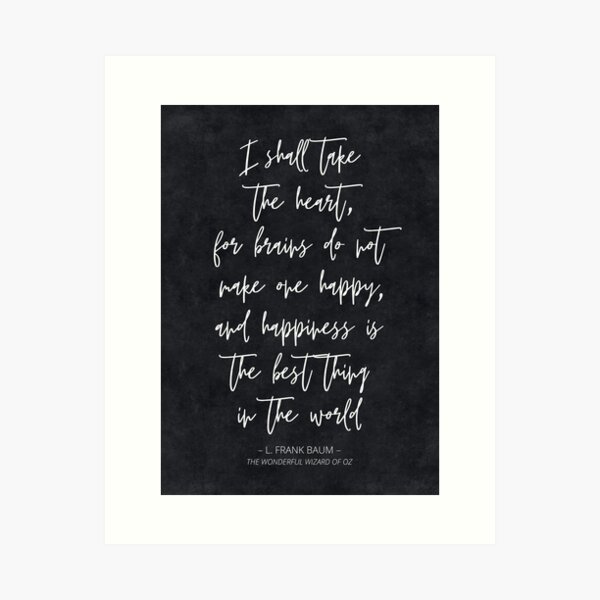 I shall take
the heart,
for brains do not
make one happy,
and happiness is
the best thing
in the world
– L. FRANK BAUM –
THE WONDERFUL WIZARD OF OZ